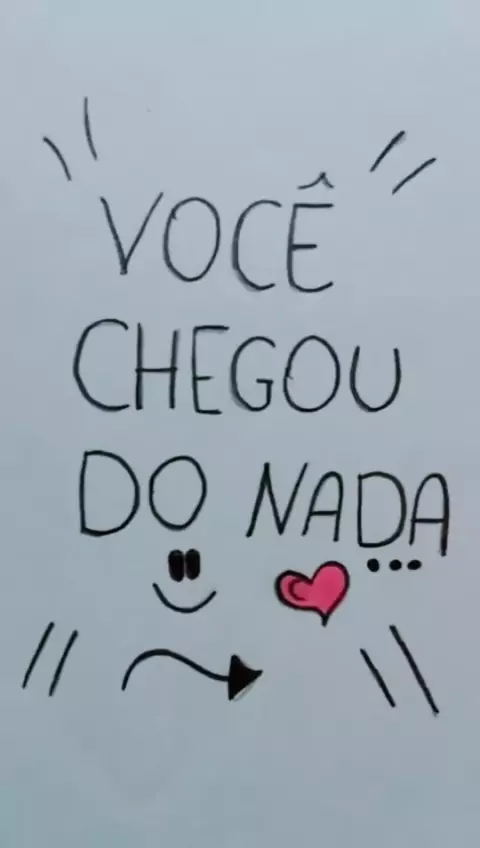 VOCÊ
CHEGOU
DO NADA
...